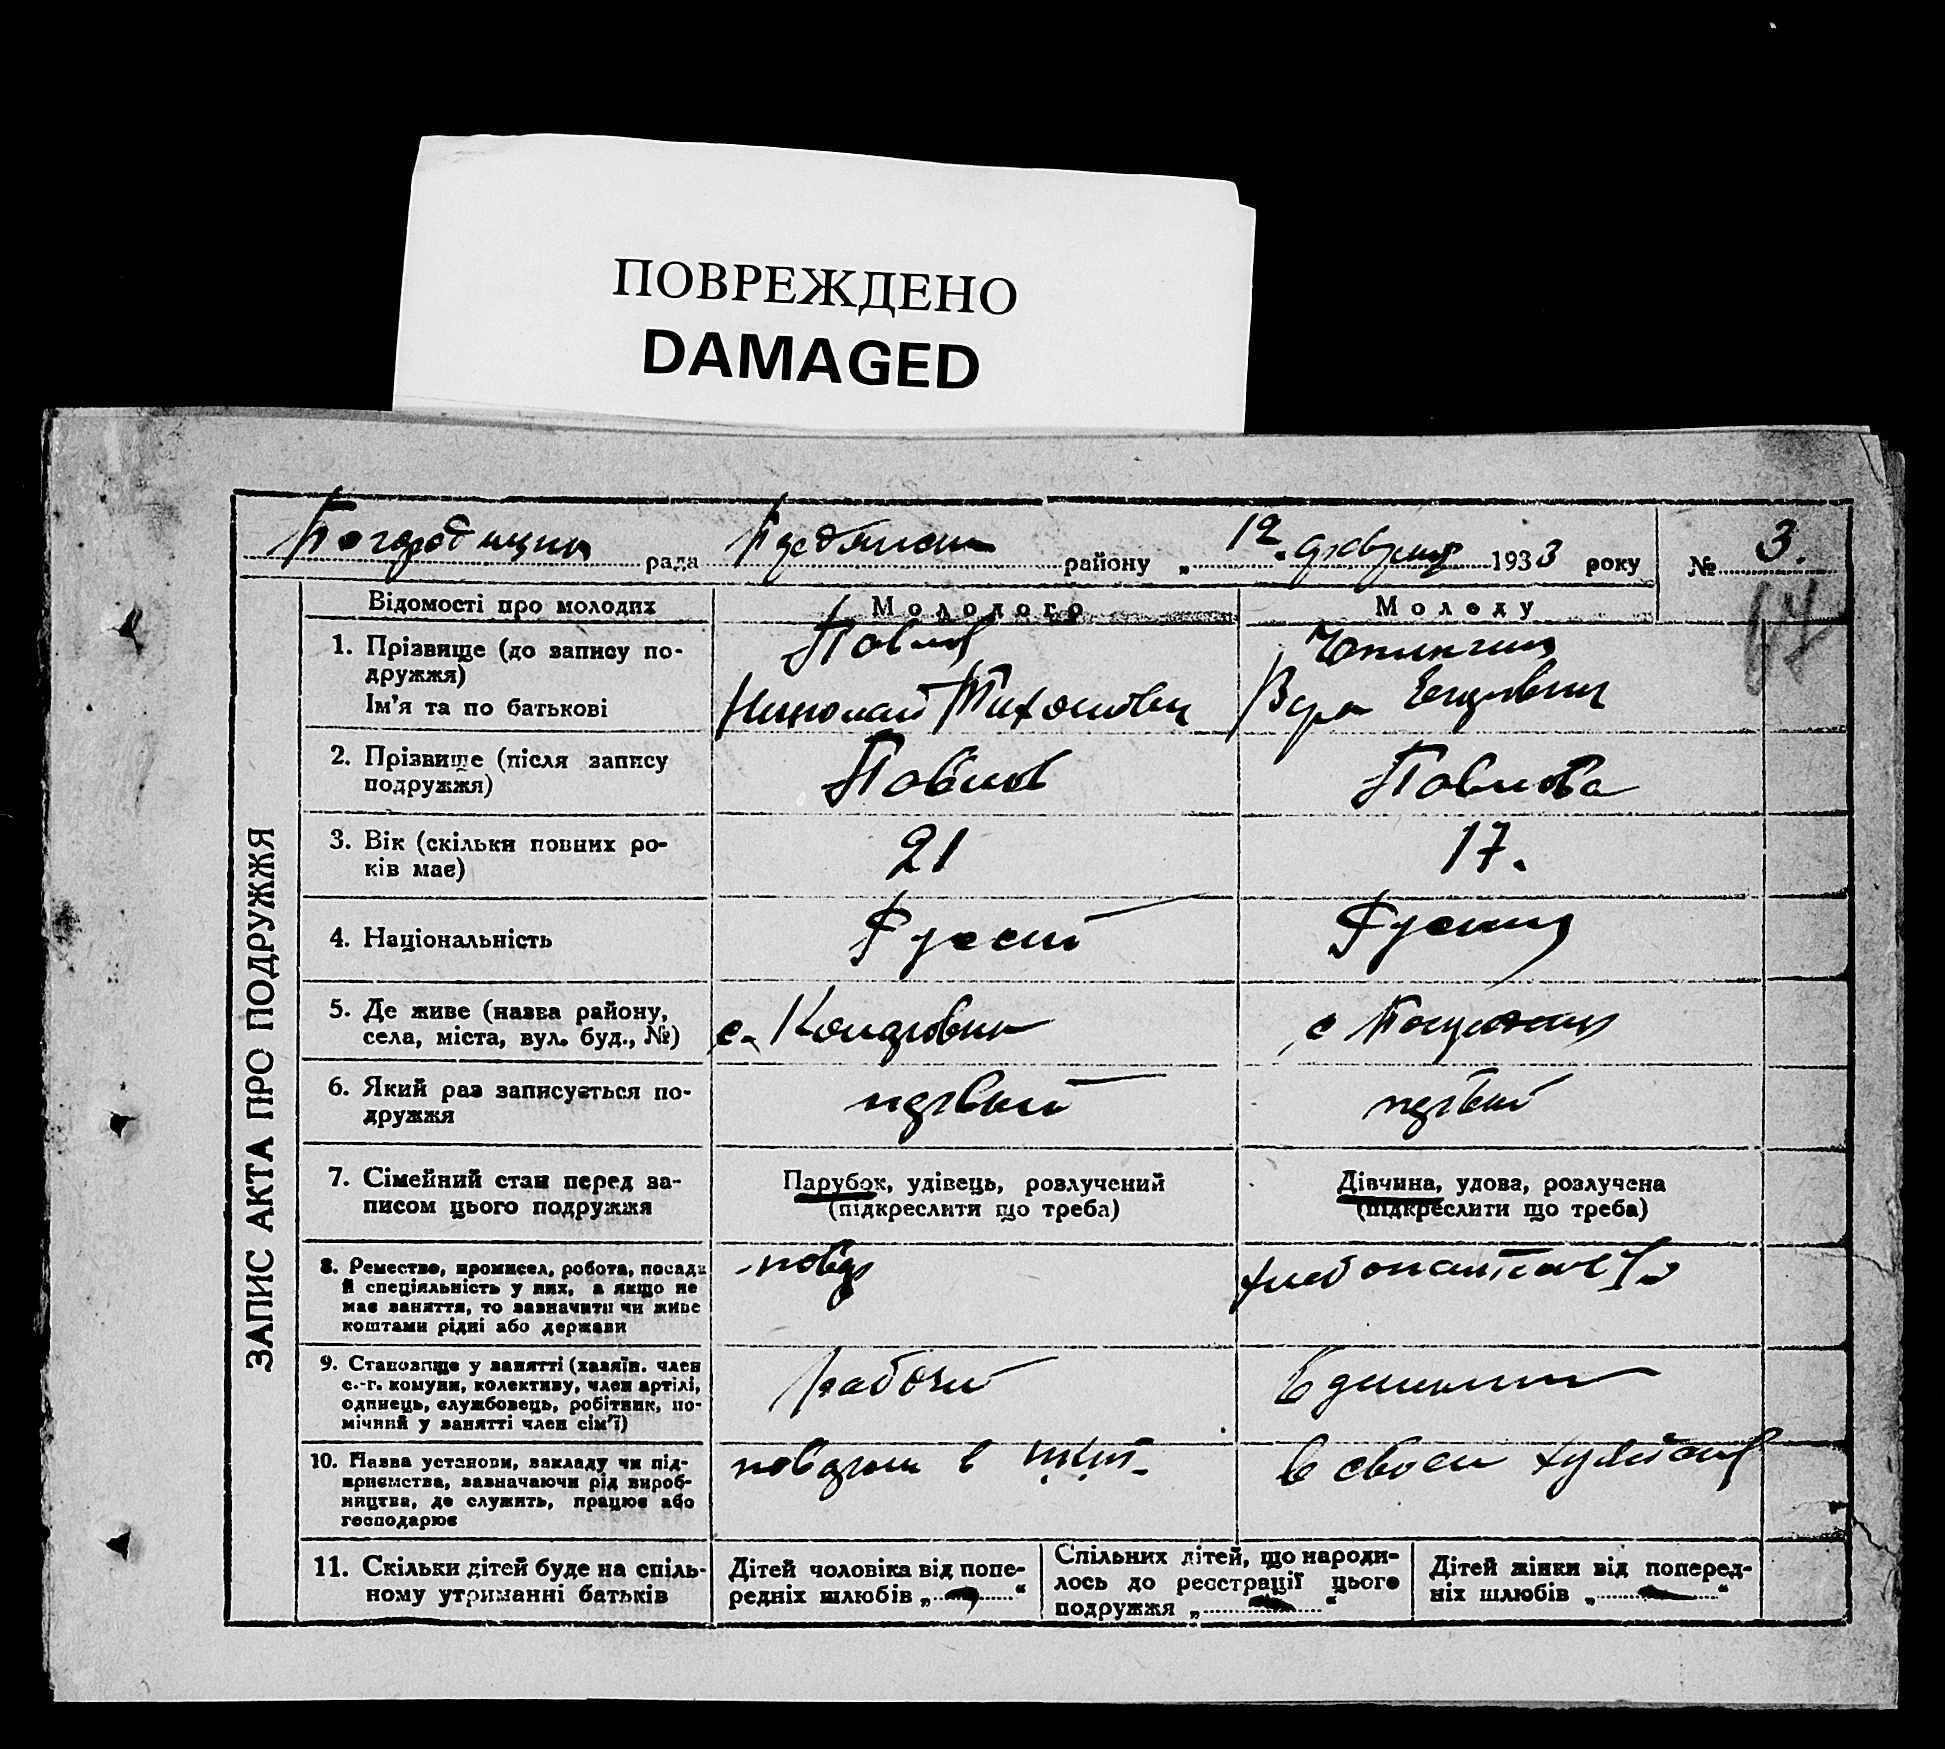 ПОВРЕЖДЕНО
DAMAGED
рада району „ 12 " февраля 1933 року № 3.
67
ЗАПИС АКТА ПРО ПОДРУЖЖЯ
Відомості про молодих Молодого Молоду
1. Прізвище (до запису по-
дружжя)
Ім'я та по батькові
Павлов
Николай Тихонович
Вера
2. Прізвище (після запису
подружжя)
Павлов Павлова
3. Вік (скільки повних ро-
ків має)
21 17.
4. Національність
Русский Русская
5. Де живе (назва району,
села, міста, вул. буд., №)
с. с
6. Який раз записується по-
дружжя
первый первый
7. Сімейний стан перед за-
писом цього подружжя
Парубок, удівець, розлучений
(підкреслити що треба)
Дівчина, удова, розлучена
(підкреслити що треба)
8. Ремество, промисел, робота, посада
й спеціяльність у них, а якщо не
має заняття, то зазначити чи живе
коштами рідні або держави
повар хлебопашество
9. Становище у занятті (хазяїн, член
с.-г. комуни, колективу, член артілі,
одинець, службовець, робітник, по-
мічний у занятті член сім'ї)
рабочий
10. Назва установи, закладу чи під-
приємства, зазначаючи рід вироб-
ництва, де служить, працює або
господарює
поваром в в своем
11. Скільки дітей буде на спіль-
ному утриманні батьків
Дітей чоловіка від попе-
редніх шлюбів „ — "
Спільних дітей, що народи-
лось до реєстрації цього
подружжя „ — "
Дітей жінки від поперед-
ніх шлюбів „ — "